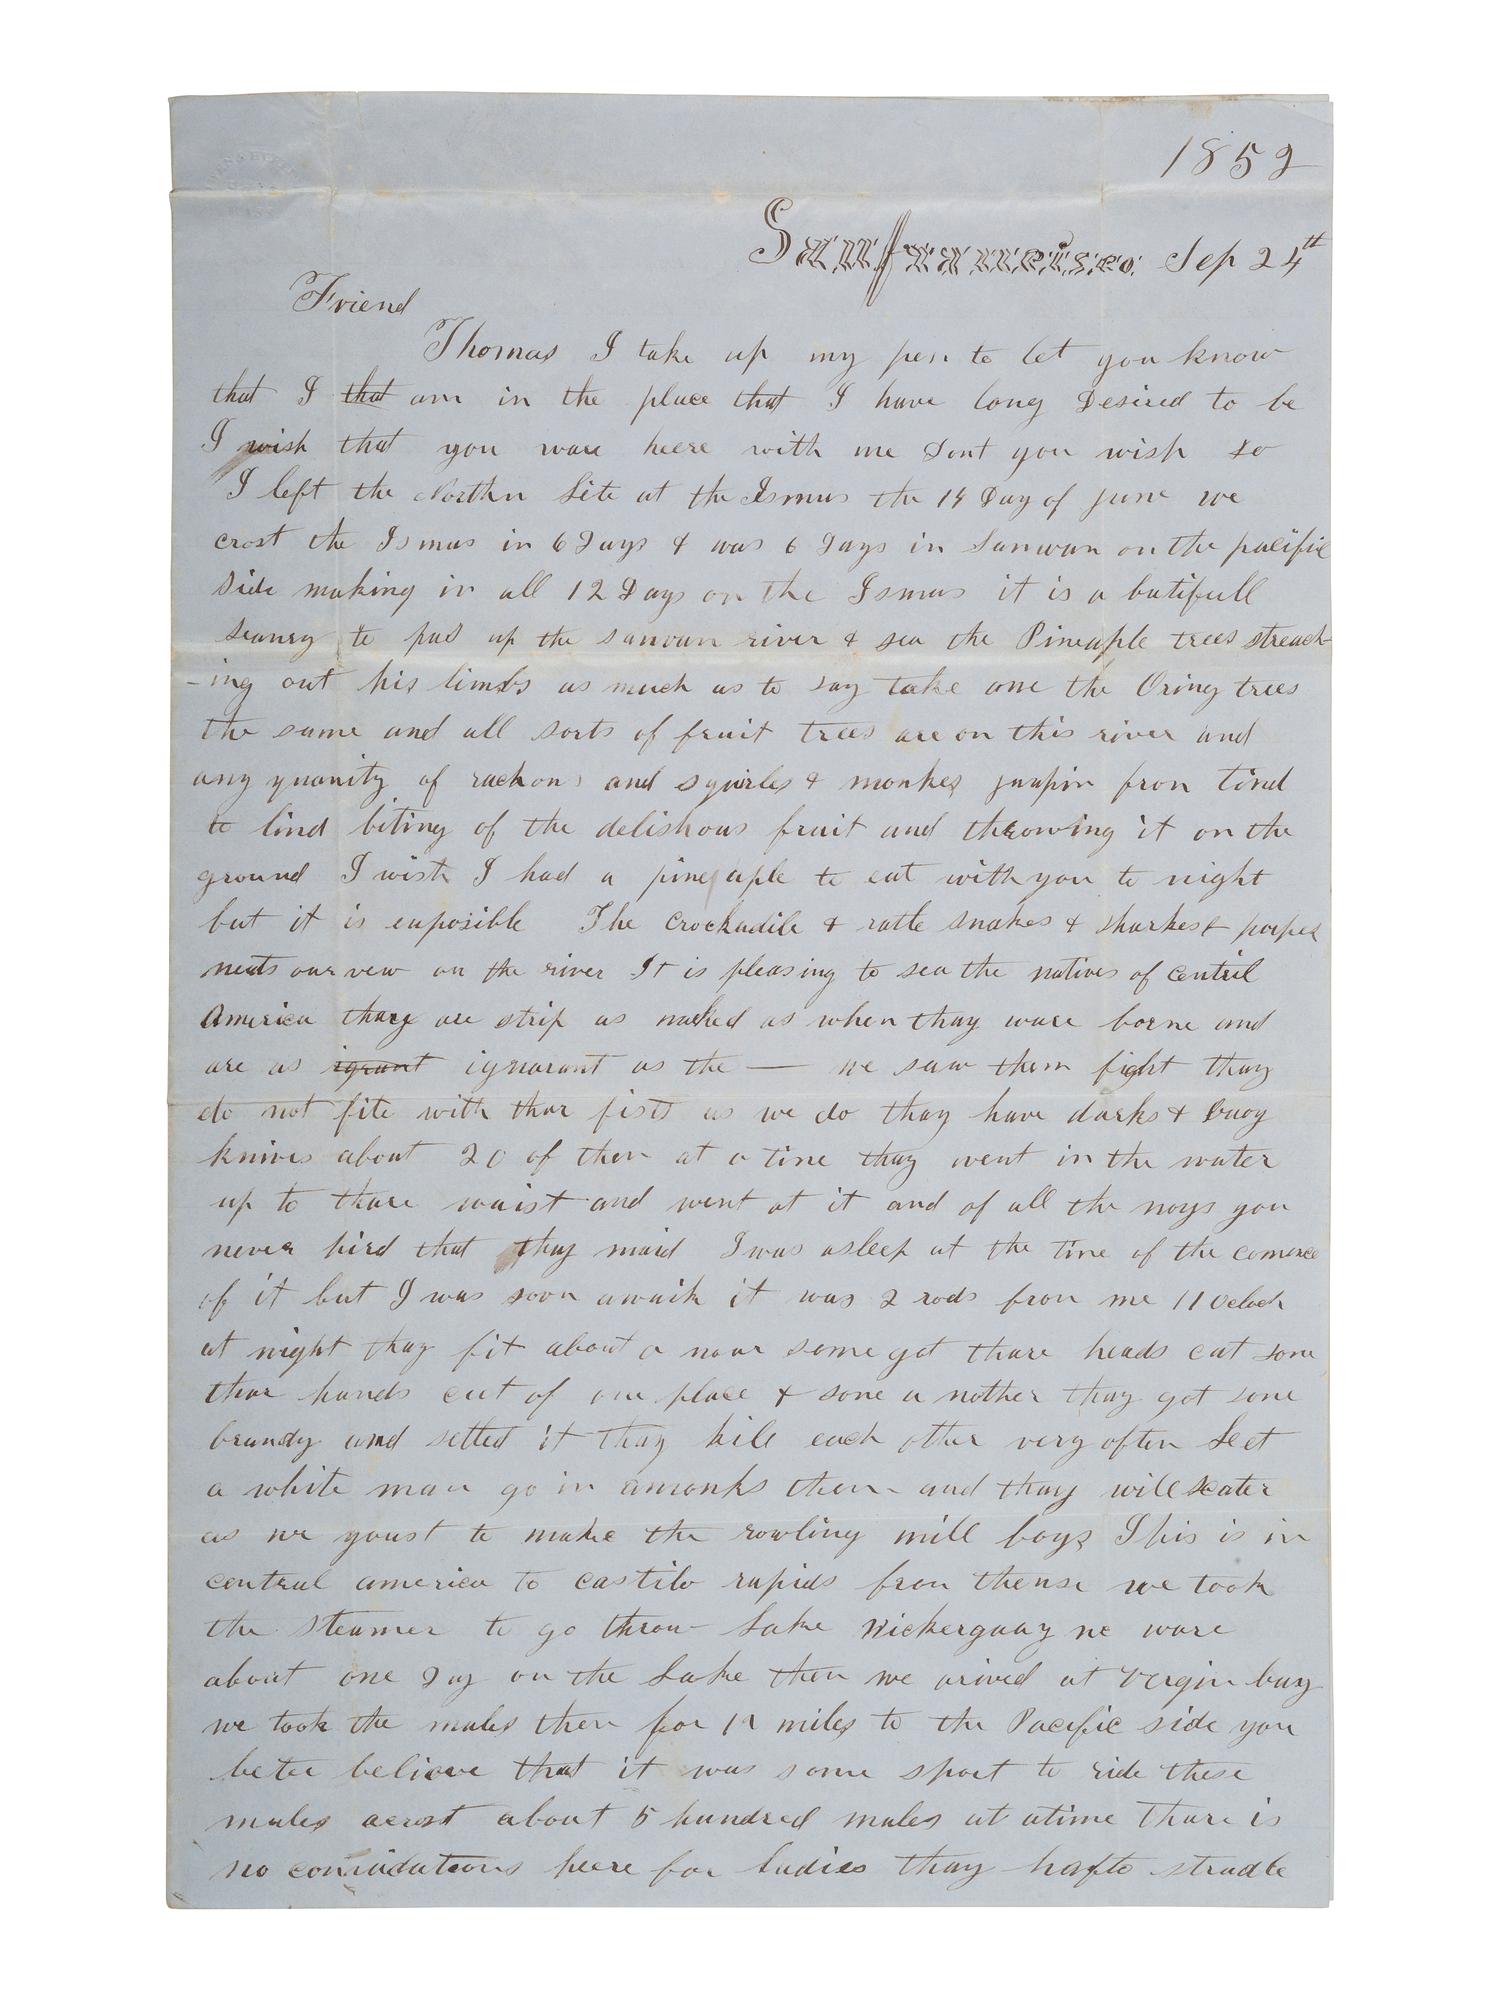 1852
Sanfrancisco. Sep 24th
Friend
Thomas I take up my pen to let you know
that I that am in the place that I have long Desired to be
I wish that you ware heere with me Dont you wish so
I left the Northn Site at the Ismus the 14 Day of june we
crost the Ismus in 6 Days & was 6 Days in Sanwan on the pacific
side making in all 12 Days on the Ismus it is a butifull
seanry to pas up the sanwan river & sea the Pineaple trees streach
-ing out his limbs as much as to say take one the Oring trees
the same and all sorts of fruit trees are on this river and
any quanity of rackons and squirles & monkes jumpin from limd
to limd biting of the delishous fruit and throwing it on the
ground I wish I had a pineaple to eat with you to night
but it is imposible The Crockadile & rattle snakes & sharkes & porpes
meets our vew on the river It is pleasing to sea the natives of Centril
America thay are strip as naked as when thay ware borne and
are as igrant ignarant as the — we saw them fight thay
do not fite with thar fists as we do thay have darks & buoy
knives about 20 of them at a time thay went in the water
up to thare waist and went at it and of all the noys you
never hird that thay maid I was asleep at the time of the comence
of it but I was soon awaik it was 2 rods from me 11 Oclock
at night thay fit about a nour some got thare heads cut some
thar hands cut of one place & some a nother thay got some
brandy and setled it thay kill each other very often Leet
a white man go in amonks them and thay will scater
as we youst to make the rowling mill boys This is in
central america to castilo rapids from thense we took
the steamer to go throw Lake Nickerguay we ware
about one Day on the Lake then we arived at Vergin bay
we took the mules then for 12 miles to the Pacific side you
beter believe that it was some sport to ride these
mules acrost about 5 hundred mules at atime thare is
no comidations heere for Ladies thay hafto stradle